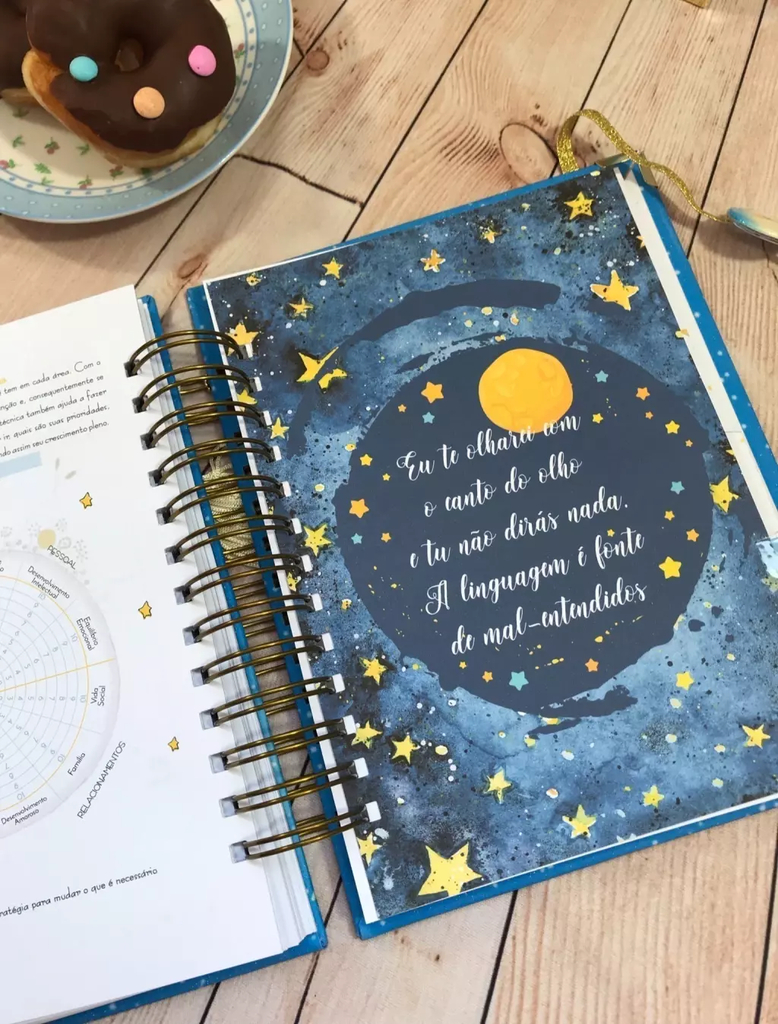 tem em cada área. Com o
nção e, consequentemente se
técnica também ajuda a fazer
ir quais são suas prioridades,
ndo assim seu crescimento pleno.
PESSOAL
Desenvolvimento
Intelectual
Equilíbrio
Emocional
Vida
Social
Família
RELACIONAMENTOS
Desenvolvimento
Amoroso
ratégia para mudar o que é necessário
Eu te olharei com
o canto do olho
e tu não dirás nada.
A linguagem é fonte
de mal-entendidos